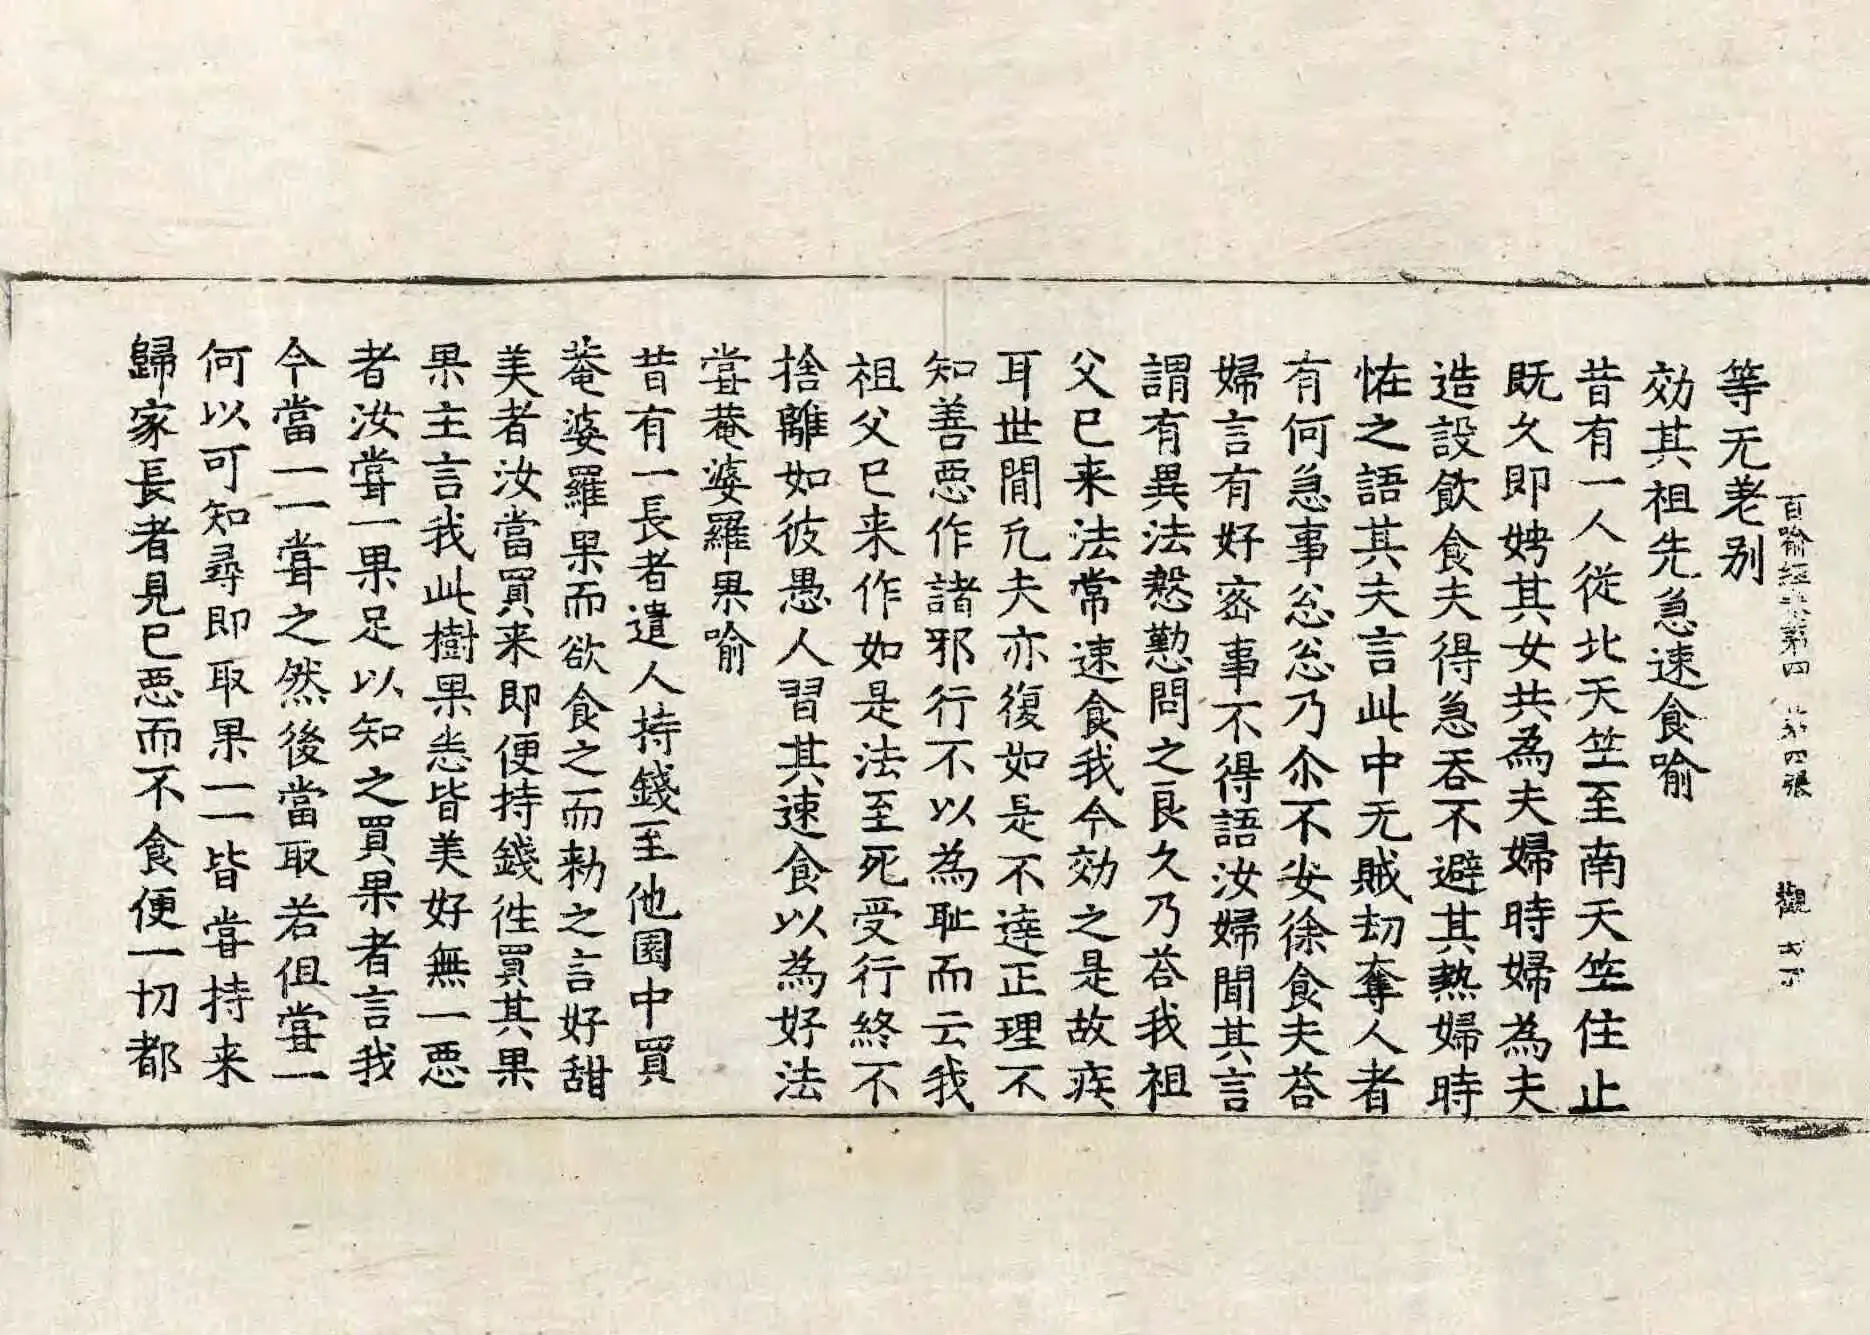 百喻經卷第四 第四張 觀
等无老别
効其祖先急速食喻
昔有一人從北天竺至南天竺住止
既久即娉其女共為夫婦時婦為夫
造設飲食夫得急吞不避其熱婦時
恠之語其夫言此中无賊刧奪人者
有何急事忩忩乃尒不安徐食夫荅
婦言有好宻事不得語汝婦聞其言
謂有異法慇懃問之良久乃荅我祖
父已来法常速食我今効之是故疾
耳世間凢夫亦復如是不達正理不
知善惡作諸邪行不以為耻而云我
祖父已来作如是法至死受行終不
捨離如彼愚人習其速食以為好法
甞菴婆羅果喻
昔有一長者遣人持錢至他園中買
菴婆羅果而欲食之而勑之言好甜
美者汝當買来即便持錢徃買其果
果主言我此樹果悉皆美好無一惡
者汝甞一果足以知之買果者言我
今當一一甞之然後當取若但甞一
何以可知尋即取果一一皆甞持来
歸家長者見已惡而不食便一切都